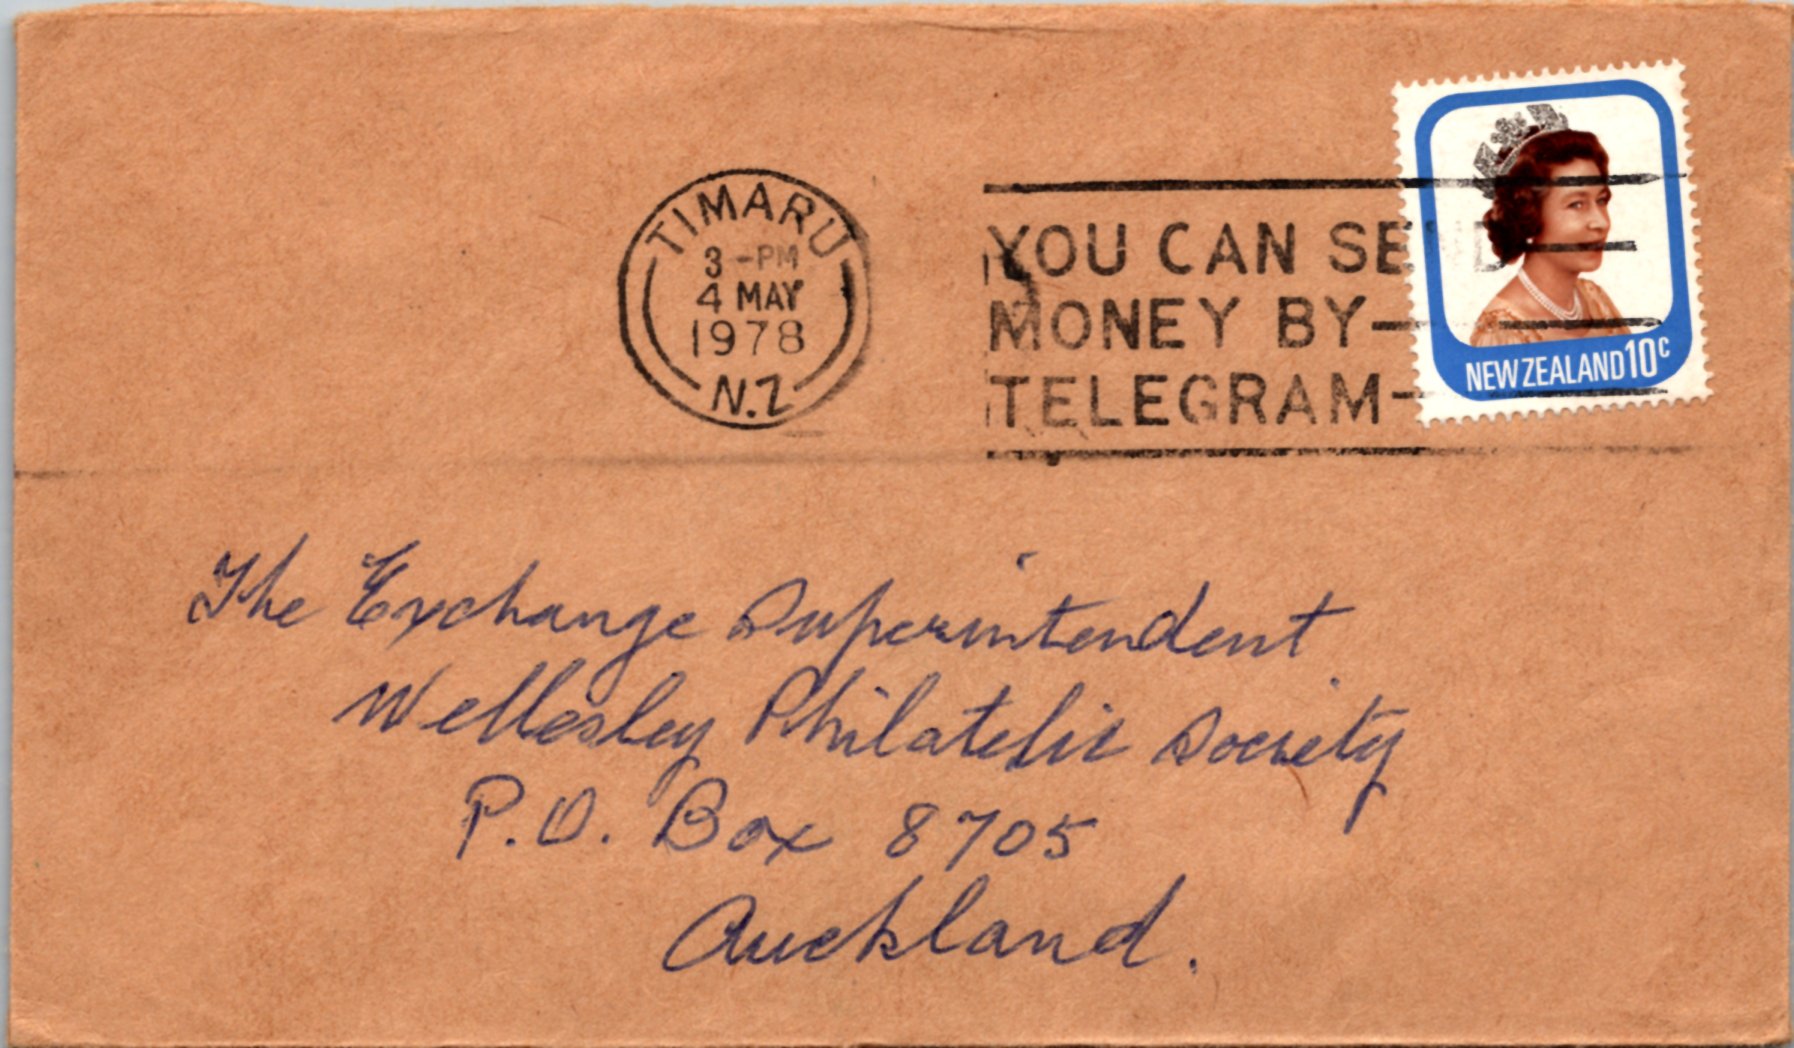 TIMARU
3 -PM
4 MAY
1978
N.Z
YOU CAN SEND
MONEY BY
TELEGRAM
NEW ZEALAND 10c
The Exchange Superintendent
Wellesley Philatelic Society
P.O. Box 8705
Auckland.